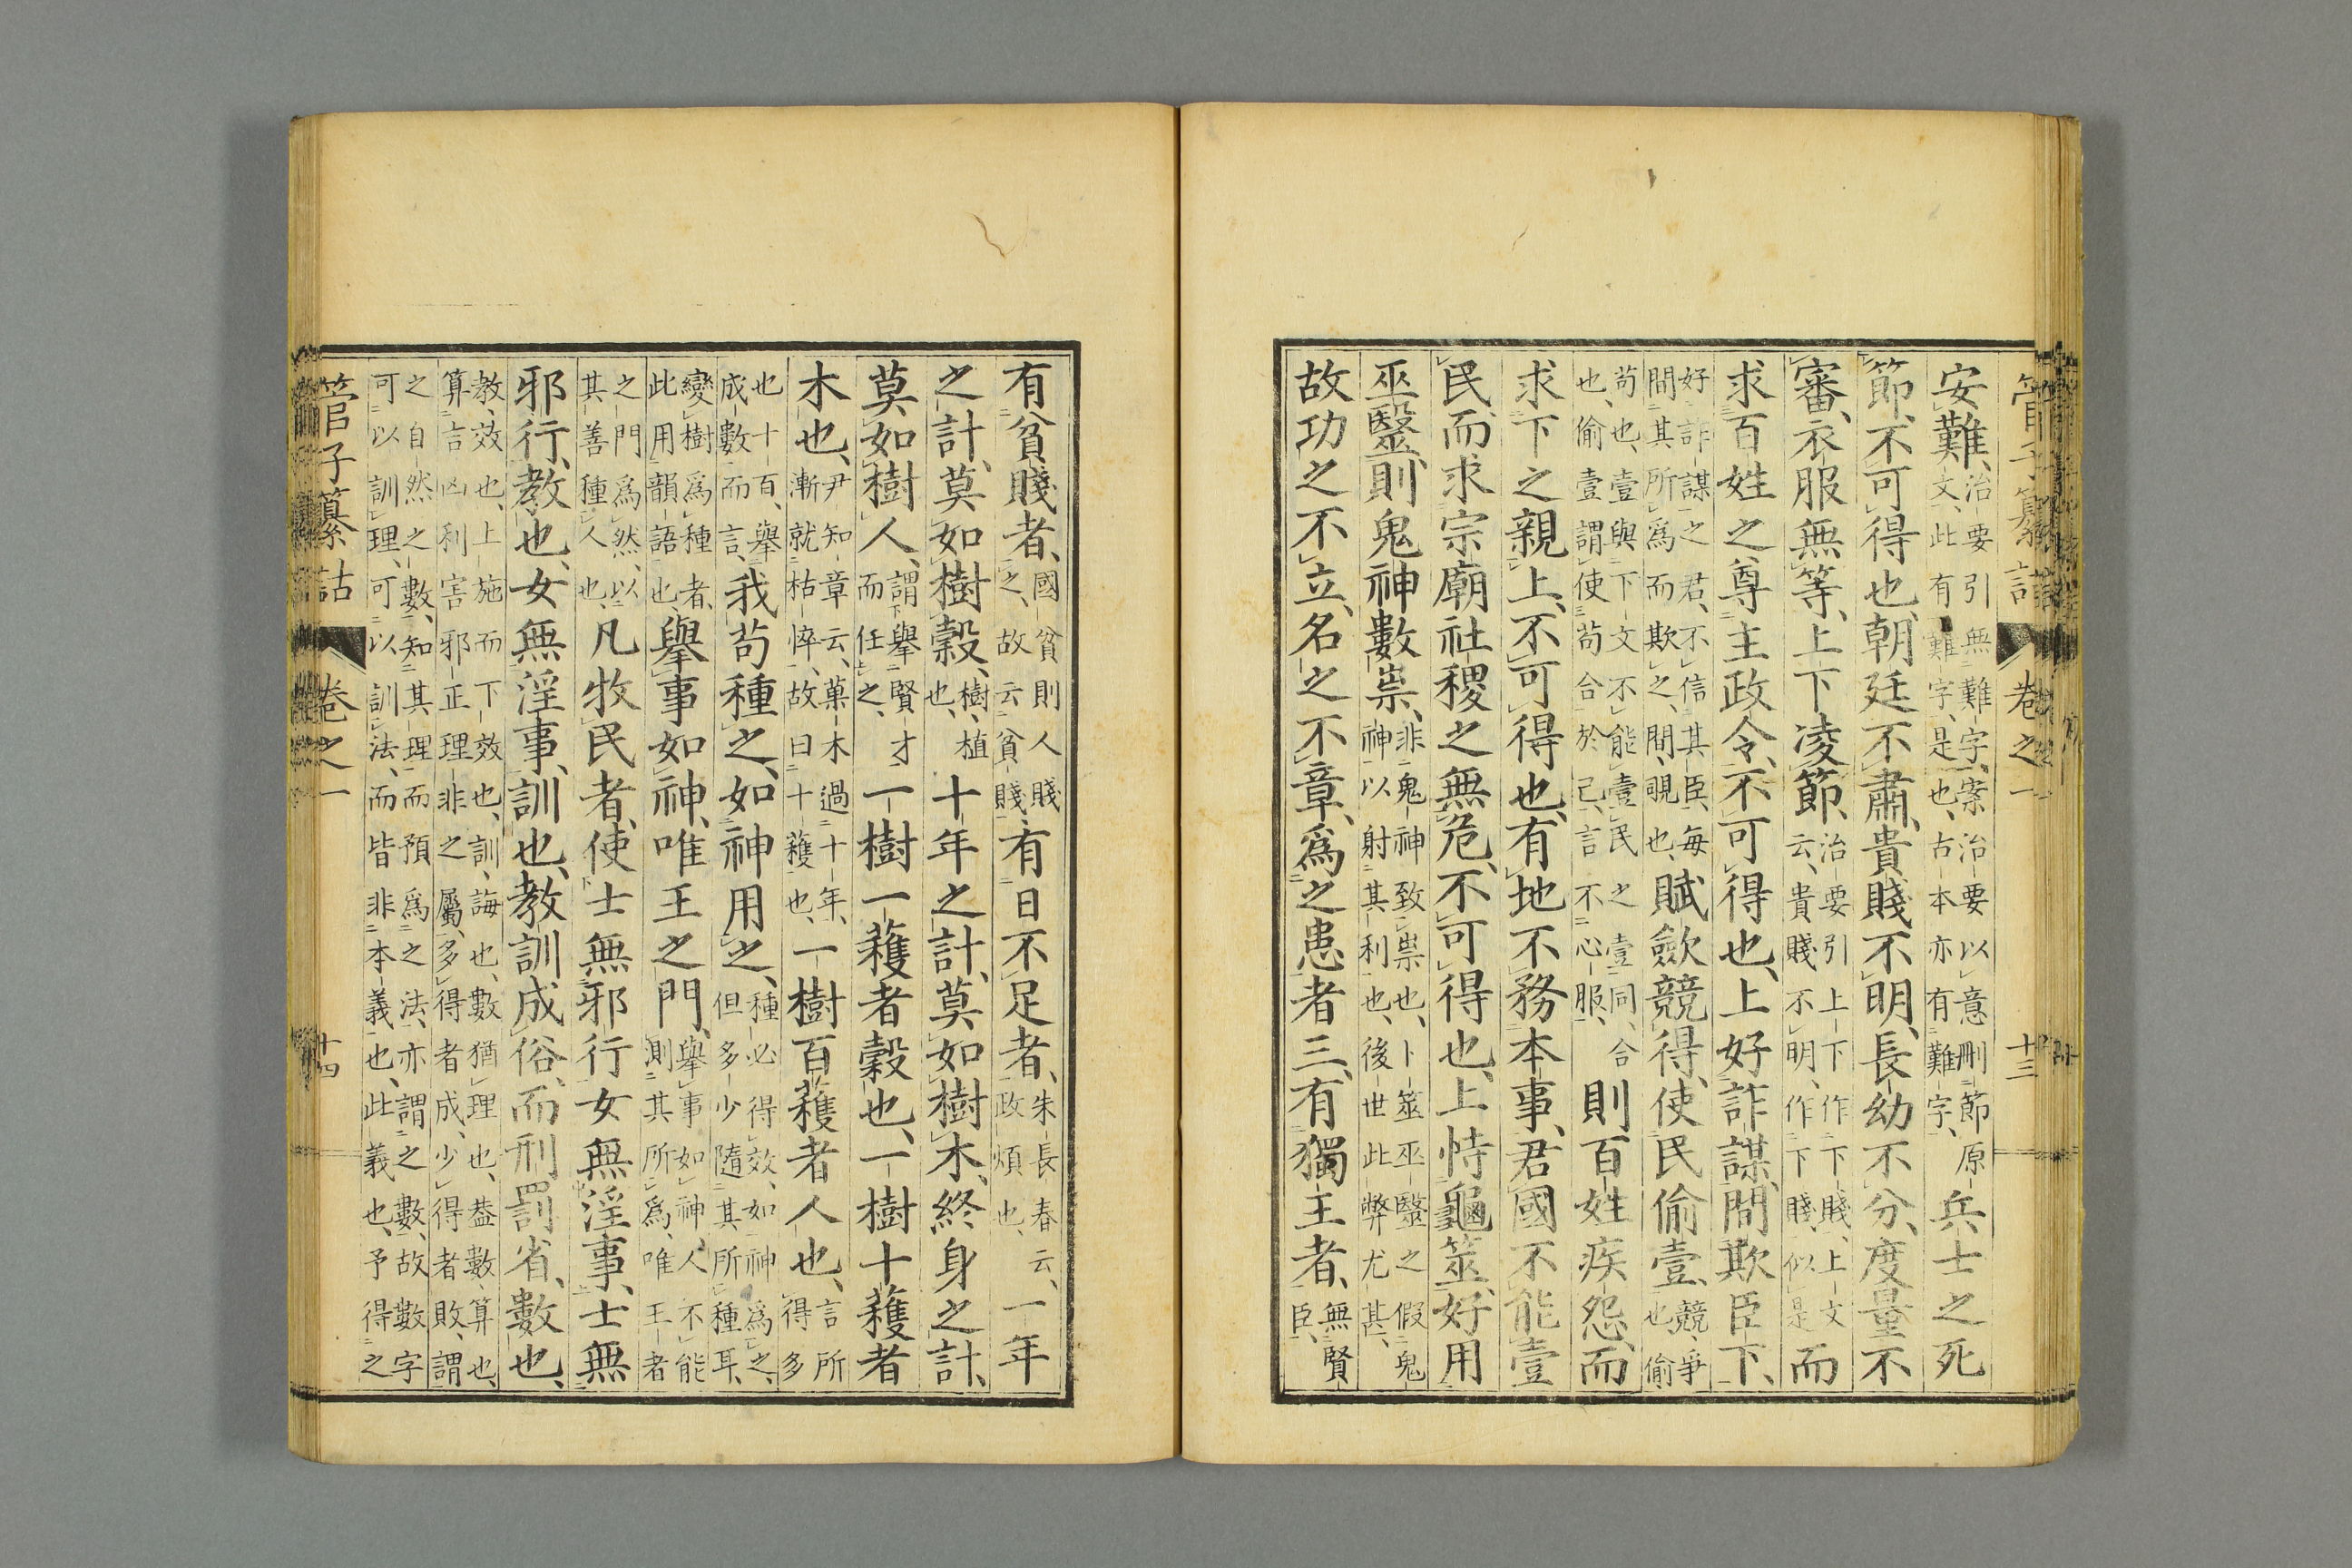 管子纂詁 卷之一 十三
安難、治要引無難字、案治要以意刪節、原
文、此有難字、是也、古本亦有難字、兵士之死
節、不可得也、朝廷不肅、貴賤不明、長幼不分、度量不
審、衣服無等、上下凌節、治要引上下作下賤、上文
云、貴賤不明、作下賤、似是而
求百姓之尊主政令、不可得也、上好詐謀、閒欺臣下、
好詐謀之君、不信其臣、每
閒其所爲而欺之、閒、覗也、賦斂競得、使民偷壹、競、爭
也、偷
苟也、壹與下文不能壹民之壹同、合
也、偷壹謂使苟合於己、言不心服、則百姓疾怨、而
求下之親上、不可得也、有地不務本事、君國不能壹
民、而求宗廟社稷之無危、不可得也、上恃龜筮、好用
巫毉、則鬼神數祟、非鬼神致祟也、卜筮巫毉之假鬼
神以射其利也、後世此弊尤甚、
故功之不立、名之不章、爲之患者三、有獨王者、無賢
臣、
有貧賤者、國貧則人賤
之、故云貧賤、有日不足者、朱長春云、
政煩也、一年
之計、莫如樹穀、樹、植
也、十年之計、莫如樹木、終身之計、
莫如樹人、謂舉賢才
而任之、一樹一穫者穀也、一樹十穫者
木也、尹知章云、菓木過十年、
漸就枯悴、故曰十穫也、一樹百穫者人也、言所
得多
也、十百、舉
成數而言、我苟種之、如神用之、種必得效、如神爲之、
但多少隨其所種耳、
變樹爲種者、
此用韻語也、舉事如神、唯王之門、舉事如神、人不能
則其所爲、唯王者
之門爲然、以
其善種人也、凡牧民者、使士無邪行女無淫事、士無
邪行、教也、女無淫事、訓也、教訓成俗、而刑罰省、數也、
教、效也、上施而下效也、訓、誨也、數猶理也、葢數、算也、
算言凶利害邪正理非之屬、多得者成、少得者敗、謂
之自然之數、知其理而預爲之法、亦謂之數、故數字
可以訓理、可以訓法、而皆非本義也、此義也、予得之
管子纂詁 卷之一 十四